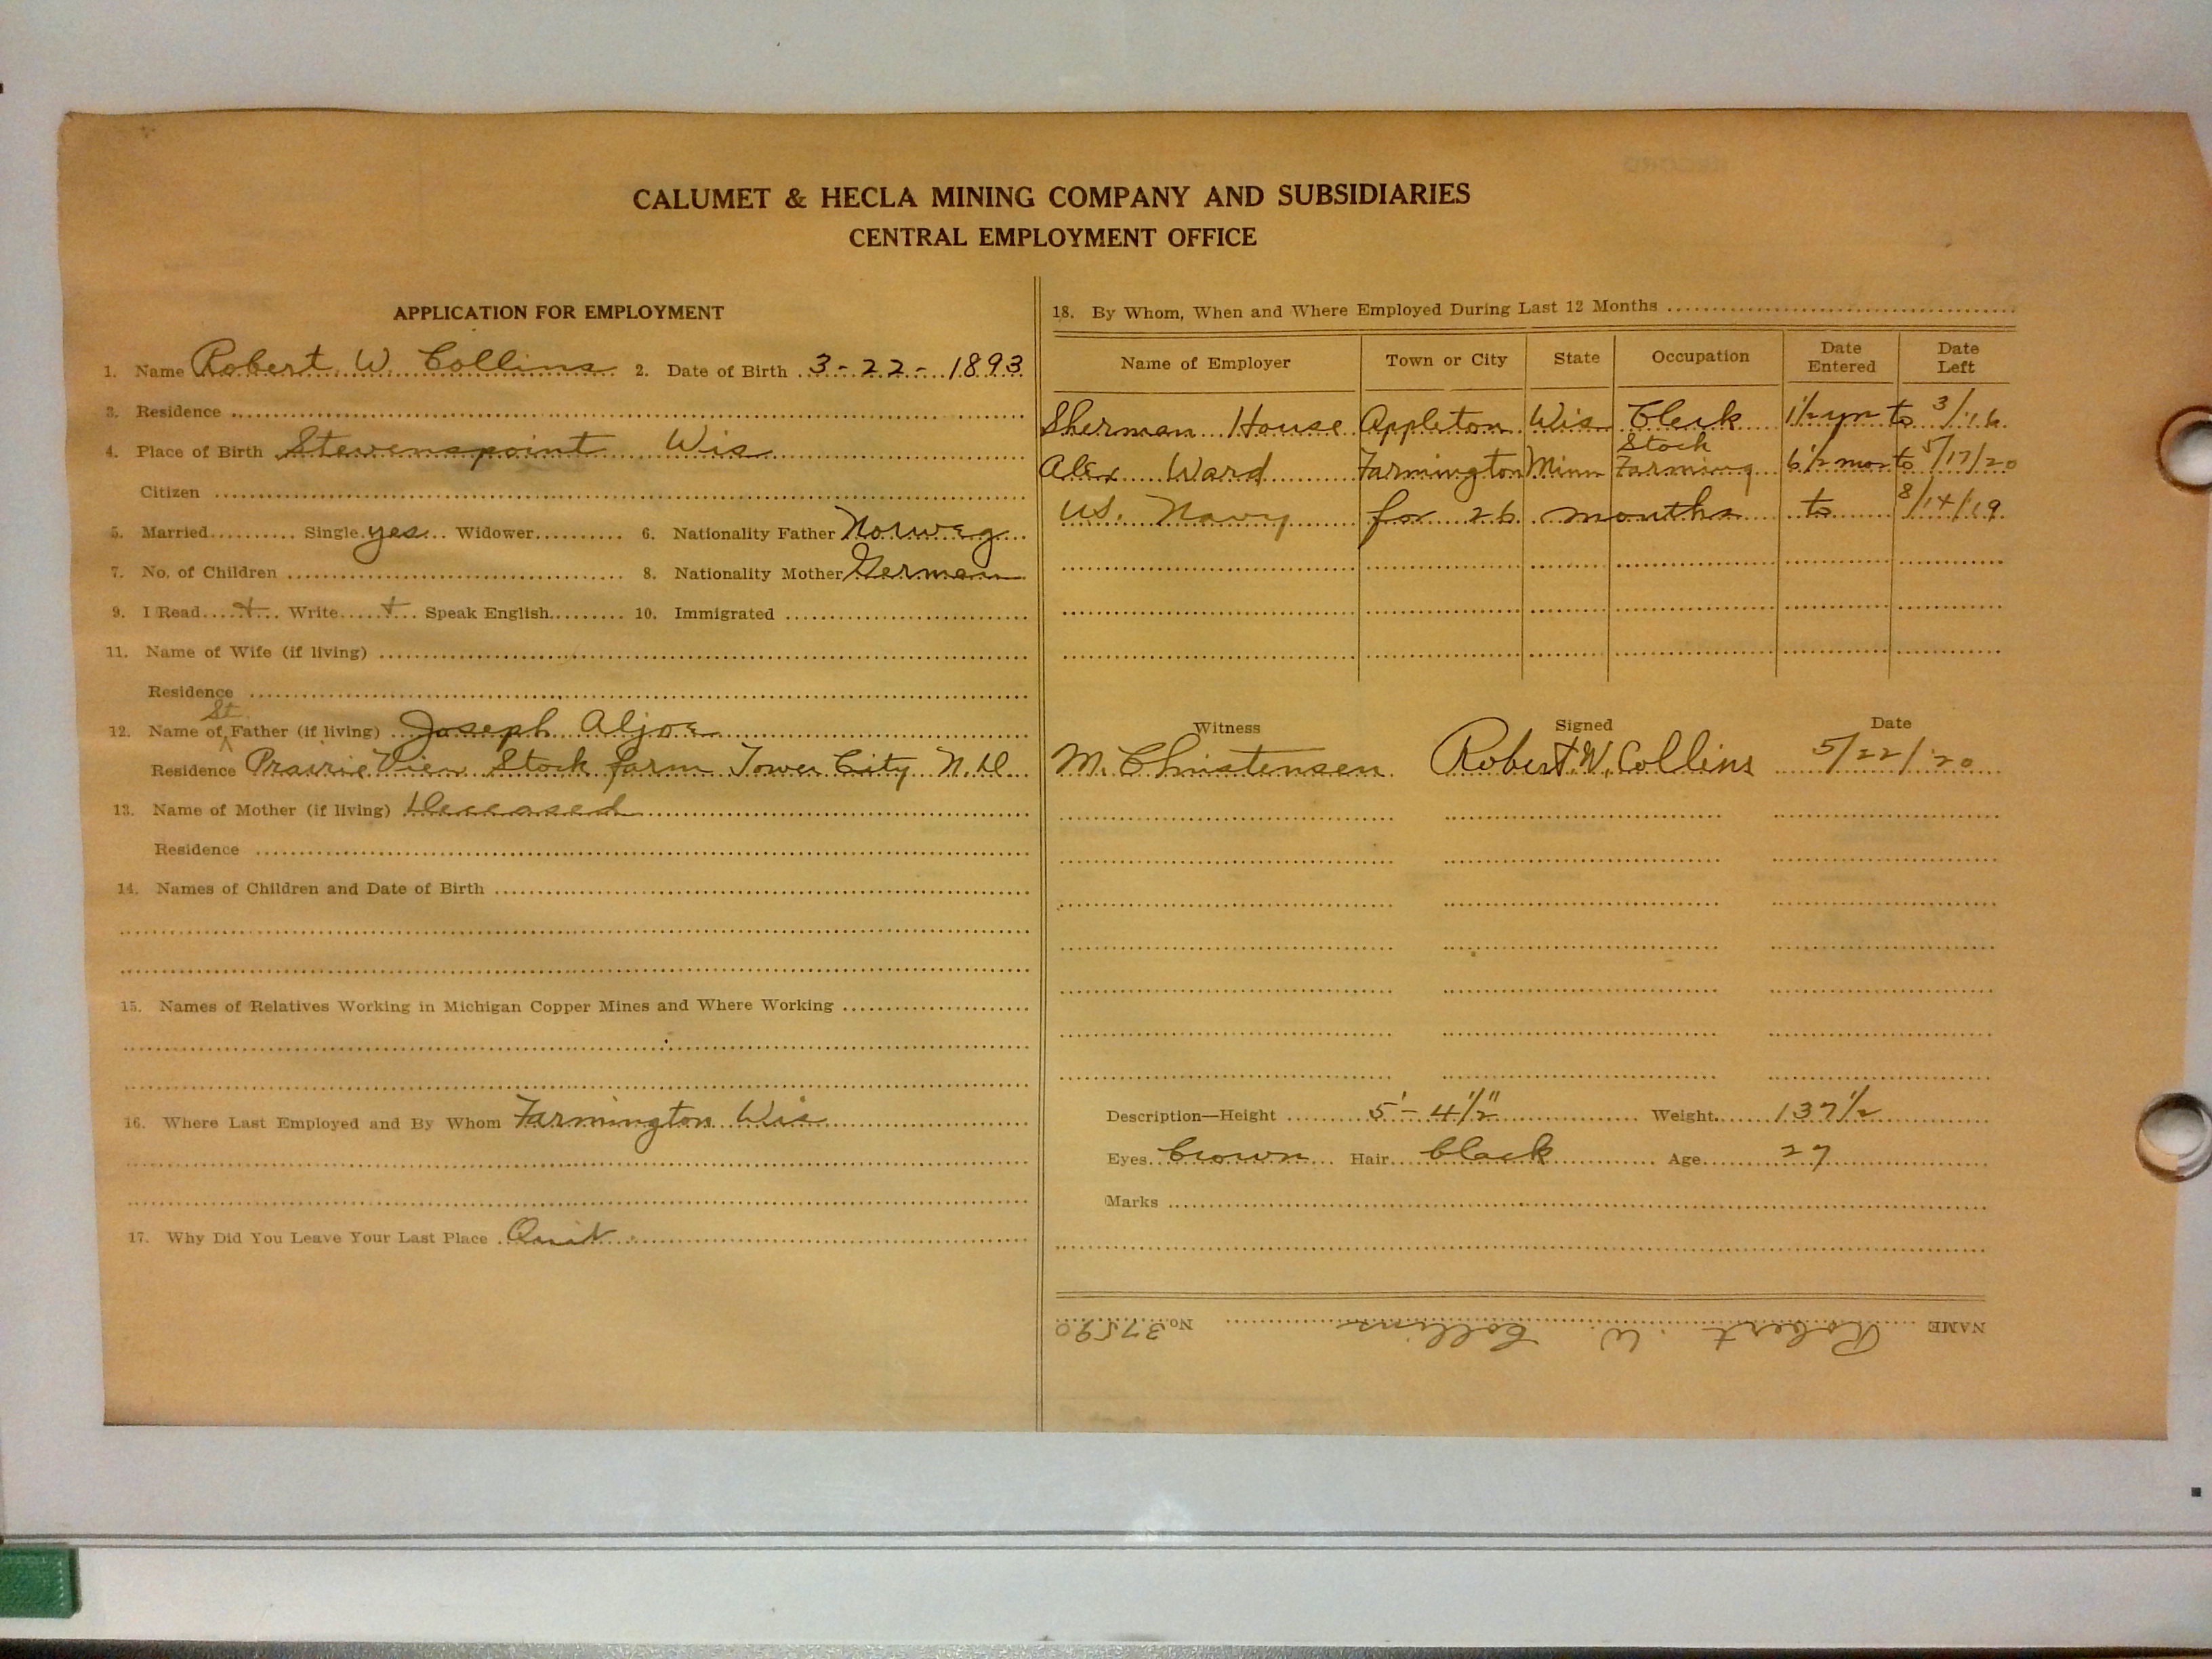 CALUMET & HECLA MINING COMPANY AND SUBSIDIARIES
CENTRAL EMPLOYMENT OFFICE
APPLICATION FOR EMPLOYMENT
1. Name Robert W. Collins 2. Date of Birth 3-22-1893
3. Residence
4. Place of Birth Stevenspoint Wis
Citizen
5. Married Single yes Widower 6. Nationality Father Norweg
7. No. of Children 8. Nationality Mother German
9. I Read + Write + Speak English 10. Immigrated
11. Name of Wife (if living)
Residence
St
12. Name of Father (if living) Joseph Aljoe
Residence Prairie View Stock farm Tower City N.D.
13. Name of Mother (if living) Deceased
Residence
14. Names of Children and Date of Birth
15. Names of Relatives Working in Michigan Copper Mines and Where Working
16. Where Last Employed and By Whom Farmington Wis
17. Why Did You Leave Your Last Place Quit
18. By Whom, When and Where Employed During Last 12 Months
Name of Employer Town or City State Occupation Date Entered Date Left
Sherman House Appleton Wis Clerk 1 1/2 yr to 3/16
Alex Ward Farmington Minn Stock Farming 6 1/2 mos to 5/17/20
U.S. Navy for 26 months to 8/14/19
Witness Signed Date
M. Christensen Robert W. Collins 5/22/20
Description—Height 5'-4 1/2" Weight 137 1/2
Eyes brown Hair black Age 27
Marks
NAME Robert W. Collins No. 37590